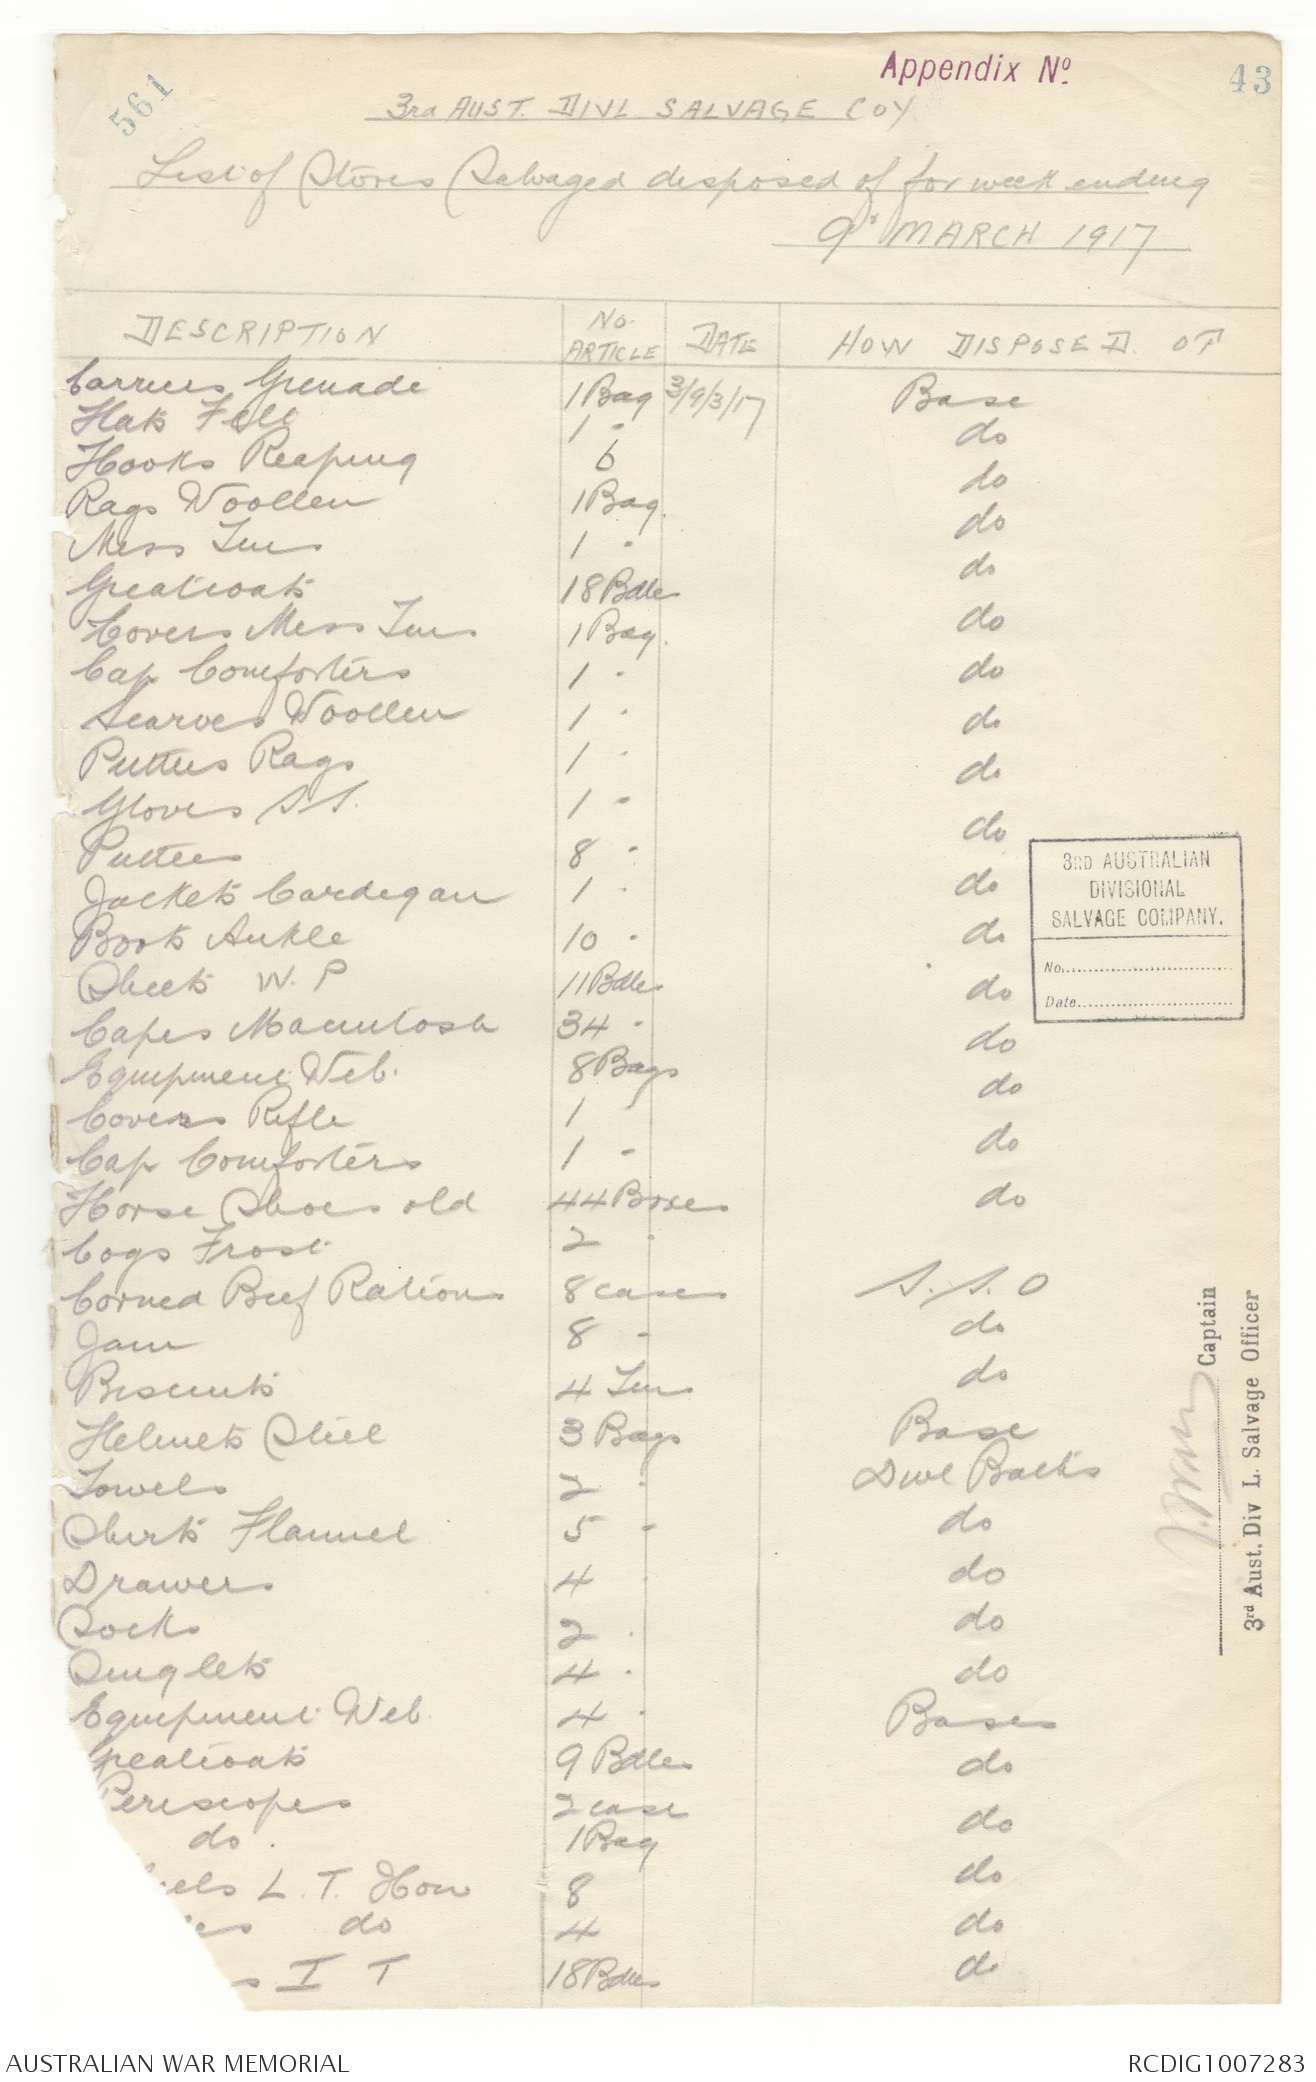 561
Appendix Nº
43
3rd AUST. DIVL SALVAGE COY
List of Stores Salvaged disposed of for week ending
9th MARCH 1917
DESCRIPTION No. ARTICLE DATE HOW DISPOSED OF
Carriers Grenade 1 Bag 3/9/3/17 Base
Hats Felt 1 " do
Hooks Reaping 6 do
Rags Woollen 1 Bag. do
Mess Tins 1 " do
Greatcoats 18 Bdles do
Covers Mess Tins 1 Bag. do
Cap Comforters 1 " do
Scarves Woollen 1 " do
Puttees Rags 1 " do
Gloves S.S. 1 " do
Puttees 8 " do
Jackets Cardegan 1 " do
Boots Ankle 10 " do
Sheets W.P 11 Bdles do
Capes Macintosh 34 " do
Equipment Web. 8 Bags do
Covers Rifle 1 " do
Cap Comforters 1 " do
Horse Shoes old 44 Boxes
Cogs Frost 2 "
Corned Beef Rations 8 cases S.S.O
Jam 8 " do
Biscuits 4 Tins do
Helmets Steel 3 Bags Base
Towels 2 " Divl Baths
Shirts Flannel 5 " do
Drawers 4 " do
Socks 2 " do
Singlets 4 " do
Equipment Web. 4 " Bases
Greatcoats 9 Bdles do
Periscopes 2 case do
do. 1 Bag
els L.T. How 8 do
es do 4 do
s I T 18 Bdles do
3RD AUSTRALIAN
DIVISIONAL
SALVAGE COMPANY.
No.
Date
Captain
3rd Aust. Div L. Salvage Officer
AUSTRALIAN WAR MEMORIAL
RCDIG1007283